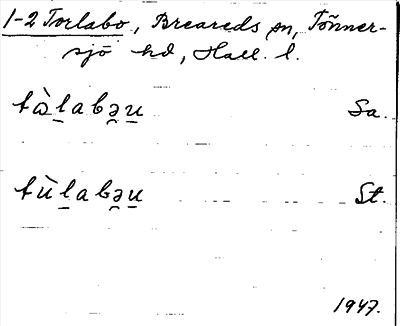 1-2 Torlabo, Breareds sn, Tönner-
sjö hd, Hall. l.
tɷ̀l̠abə̯u̠ Sa.
tùl̠abə̯u̠ St.
1947.